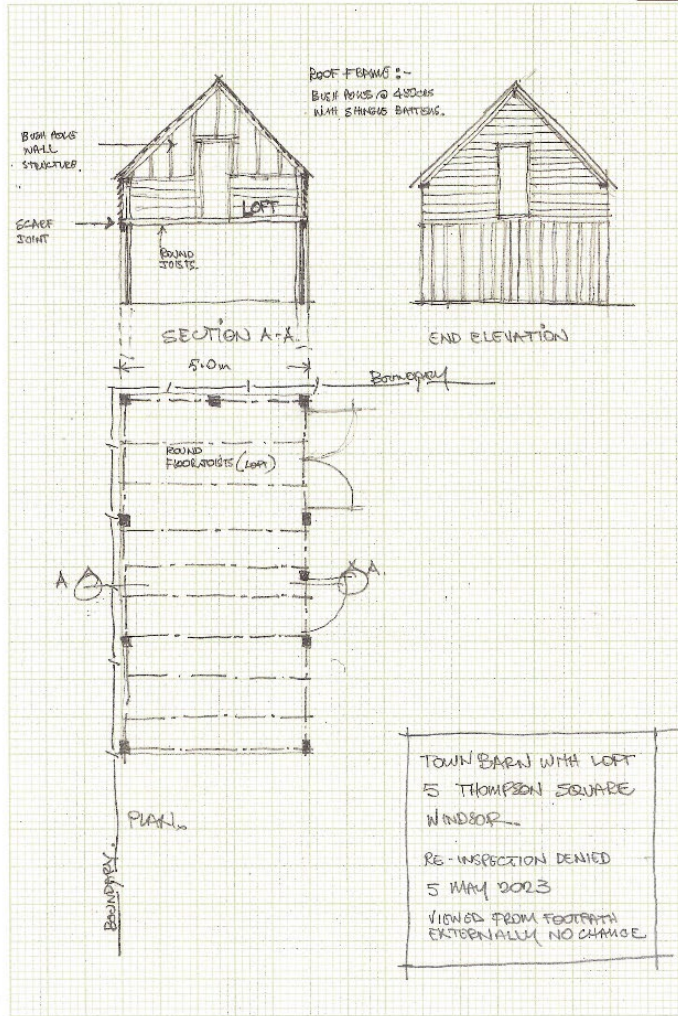 ROOF FRAME :-
BUSH POLES @ 450CRS
WITH SHINGLE BATTENS.
BUSH POLES
WALL
STRUCTURE.
LOFT
SCARF
JOINT
ROUND
JOISTS.
SECTION A-A.
END ELEVATION
5.0m
BOUNDARY
ROUND
FLOOR JOISTS (LOFT)
A
A.
TOWN BARN WITH LOFT
5 THOMPSON SQUARE
WINDSOR.
PLAN.
RE-INSPECTION DENIED
5 MAY 2023
VIEWED FROM FOOTPATH
EXTERNALLY NO CHANGE
BOUNDARY.